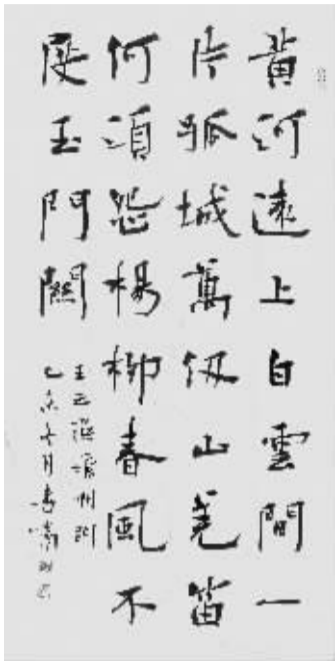 黄河遠上白雲間一
片孤城萬仞山羌笛
何須怨楊柳春風不
度玉門關
王之渙涼州詞
乙亥 月書